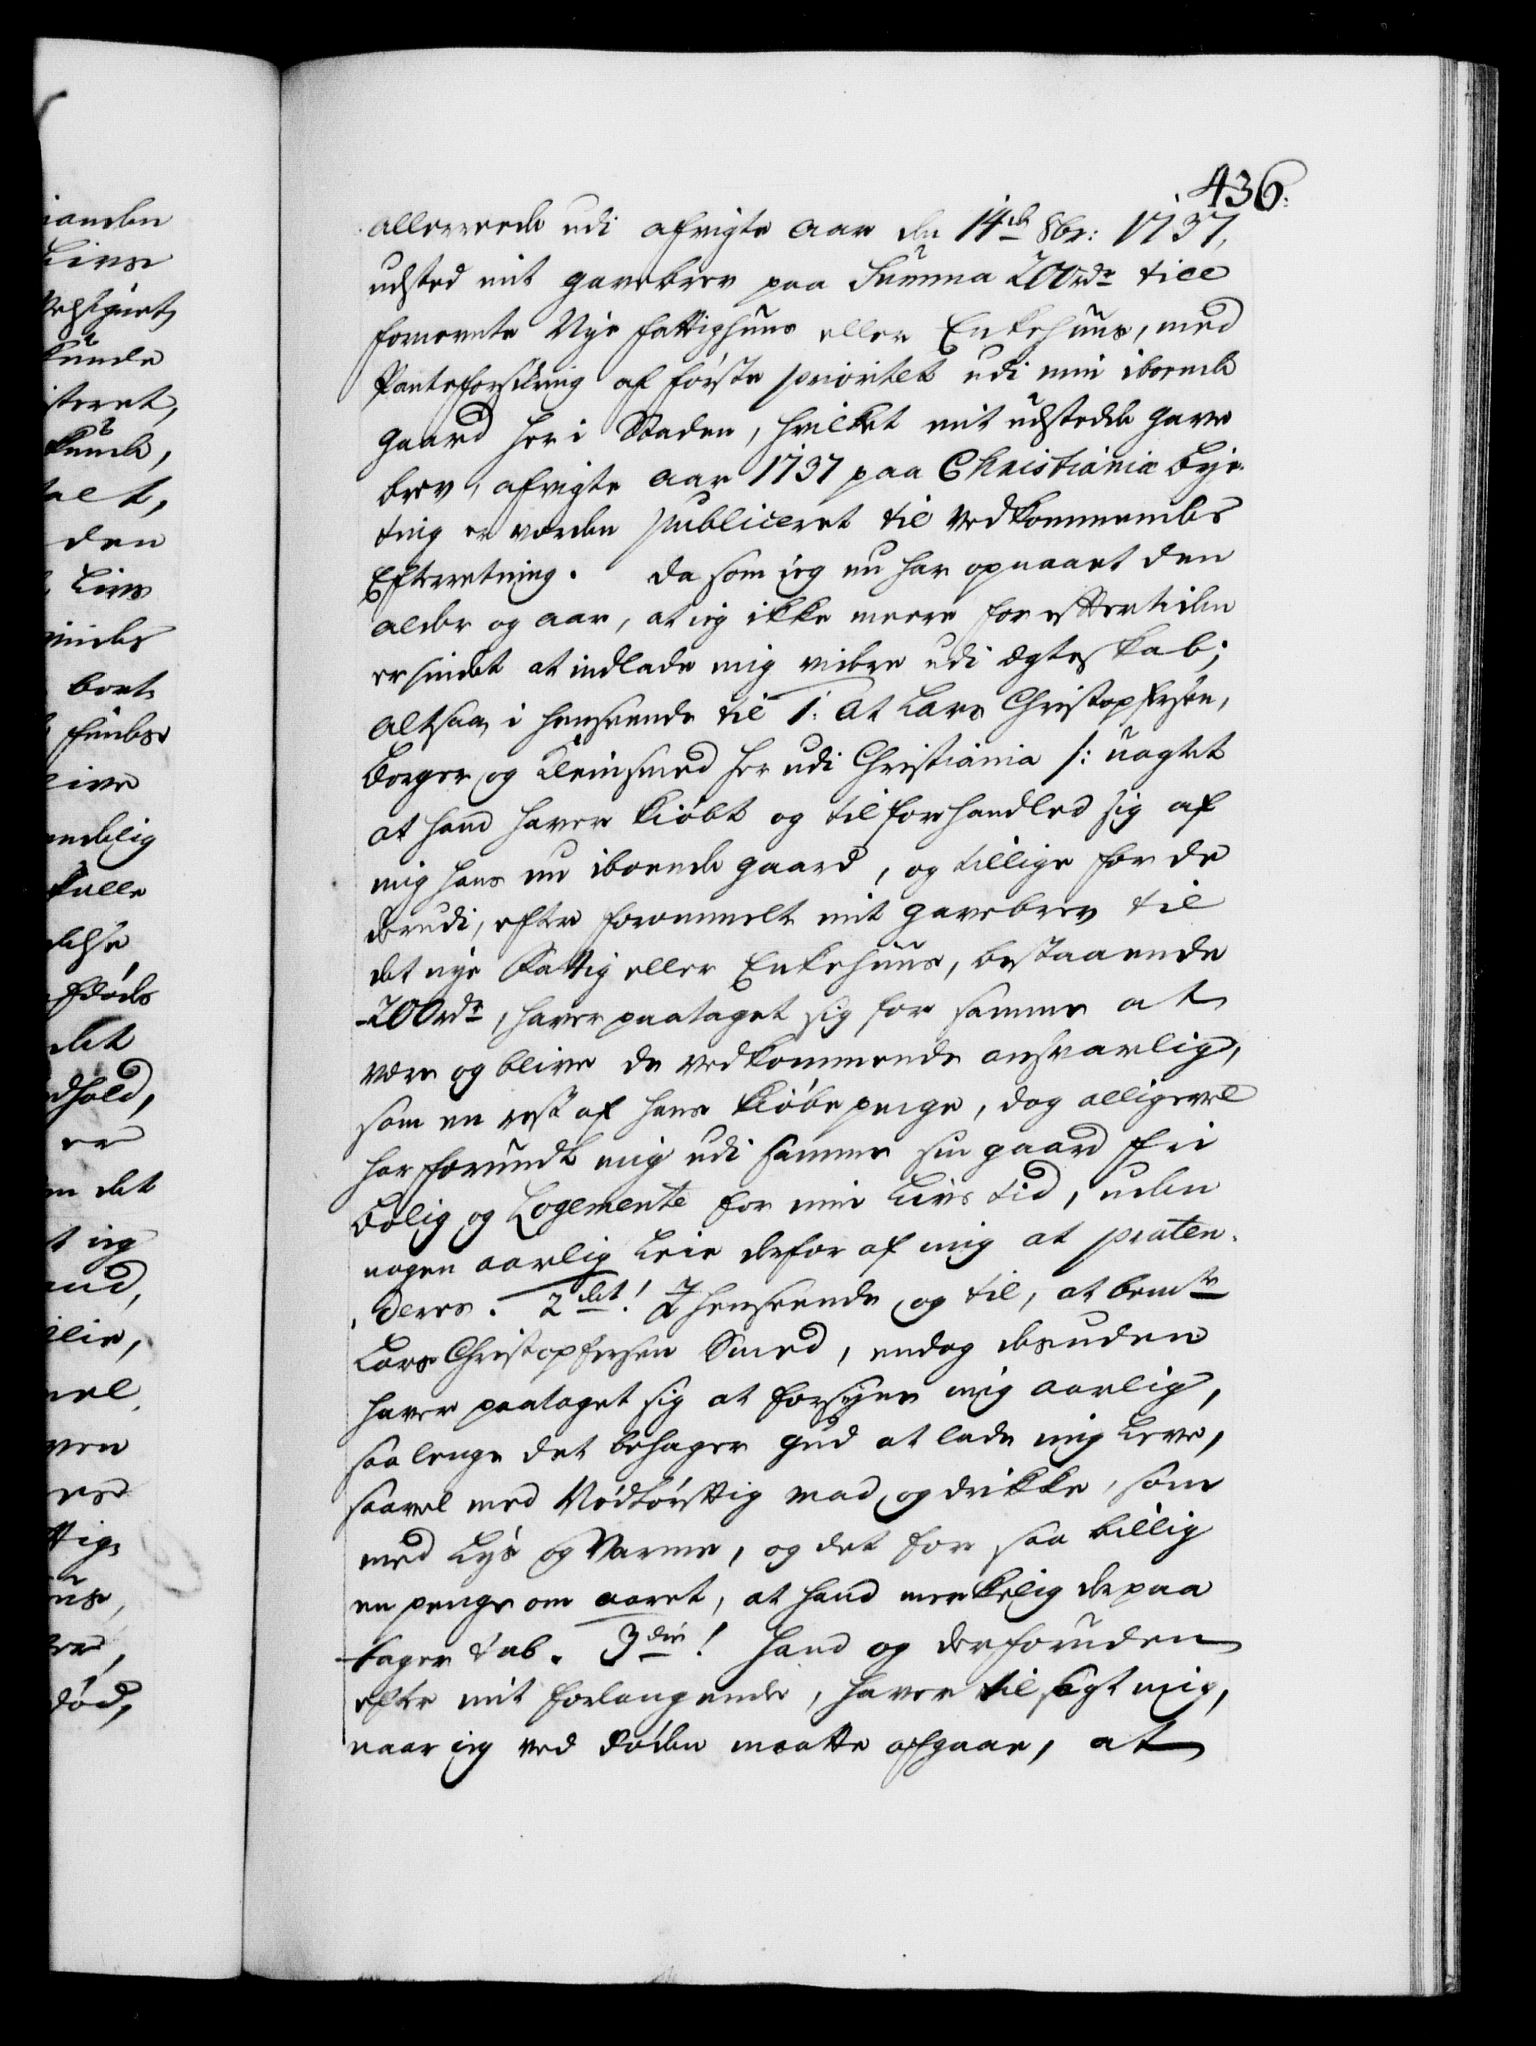 436.
allerreede udi afvigte aar den 14de 8br: 1737,
udsted mit gavebrev paa Summa 200rdr till
fornevnte Nye fattighuus eller Enkehuus, med
Panteforsikring af første prioritet udi min iboende
gaard her i Staden, hvilket mit udstedde gave
brev, afvigte aar 1737 paa Christiania bye
ting er vorden publiceret til Vedkommendes
Efterretning. da som jeg nu har opnaaet den
alder og aar, at jeg ikke meere for eftertiden
er sindet at indlade mig videre udi ægteskab;
altsaa i henseende til 1: at Lars Christophersen,
borger og Kleinsmed her udi Christiania /: uagtet
at hand haver kiøbt og tilforhandled sig af
mig hans nu iboende gaard, og tillige for de
derudi, efter forommelte mit gavebrev til
det nye Fattig eller Enkehuus, bestaaende
200rdr, haver paataget sig for samme at
være og blive de vedkommende ansvarlig,
som en rest af hans kiøbe penge, dog alligevel
har forundt mig udi samme sin gaard fri
bolig og Logemente for min Livs tid, uden
nogen aarlig Leie derfor af mig at præten-
deres. 2det! I henseende og til, at bemte
Lars Christophersen Smed, endog desuden
haver paataget sig at forsyne mig aarlig,
saa lenge det behager gud at lade mig Leve,
saavel med Nødtørftig mad og drikke, som
med Lys og Varme, og det for saa billig
en penge om aaret, at hand merkelig derpaa
tager tab. 3die! hand og derforuden
efter mit forlangende, haver tilsagt mig,
naar jeg ved døden maatte afgaae, at